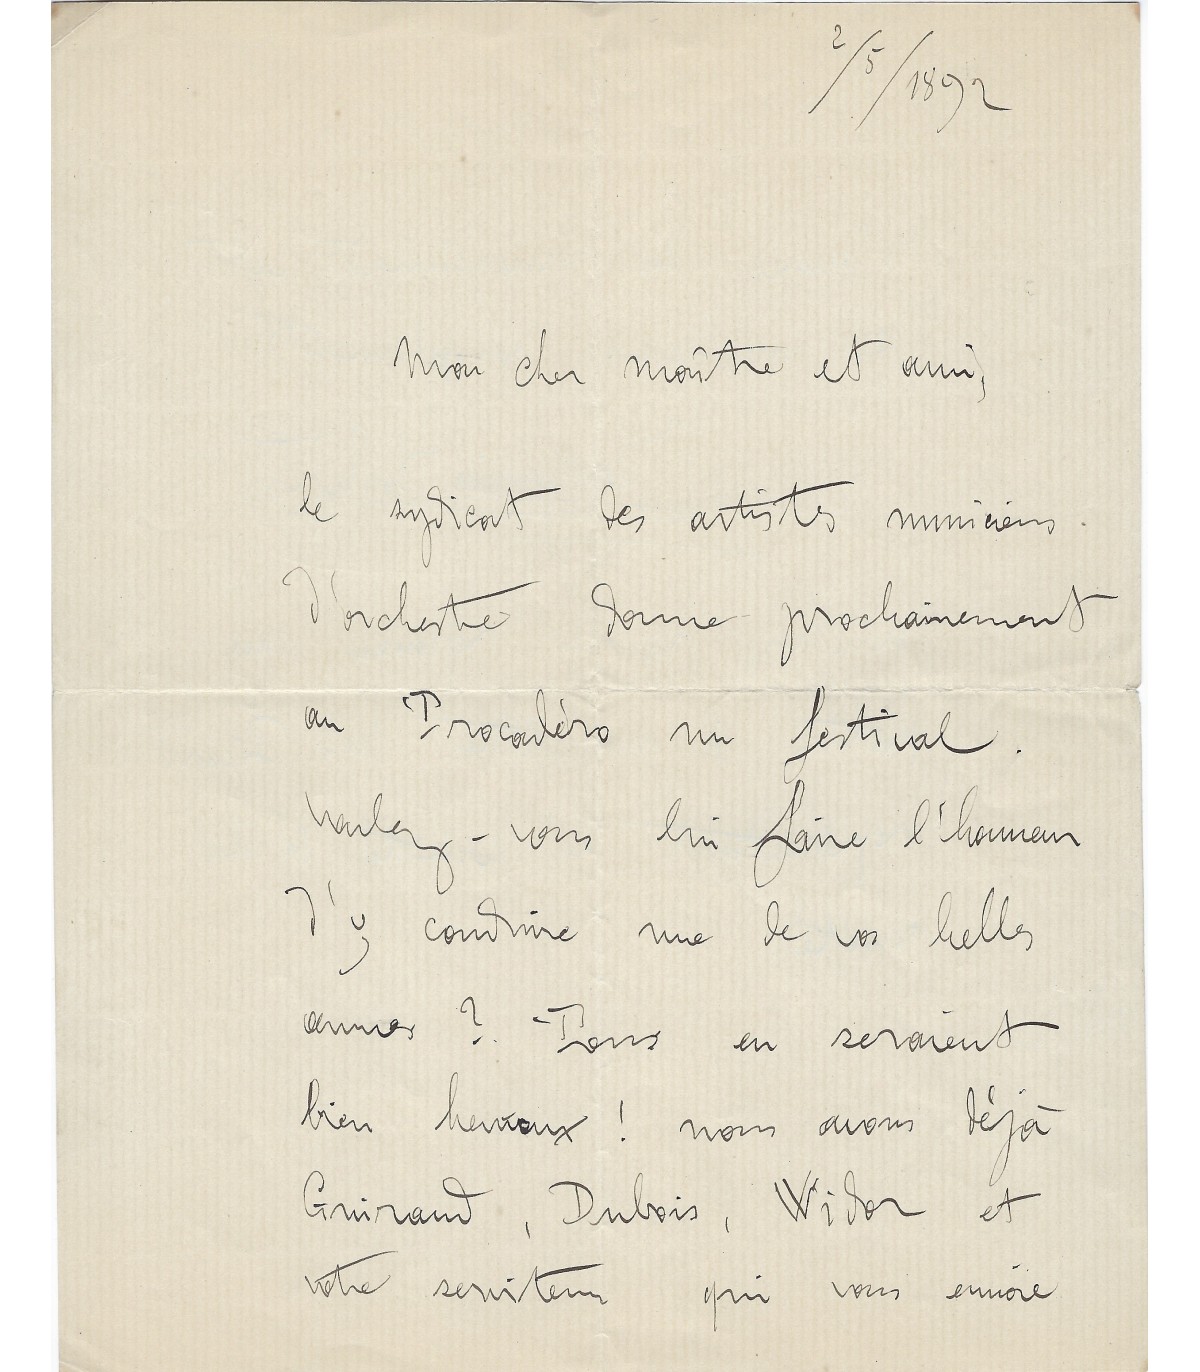 2/5/1892
Mon cher maître et ami,
le syndicat des artistes musiciens
d'orchestre donne prochainement
au Trocadéro un festival.
Voulez-vous lui faire l'honneur
d'y conduire une de vos belles
œuvres ? Tous en seraient
bien heureux ! nous avons déjà
Guiraud, Dubois, Widor et
votre serviteur qui vous envoie